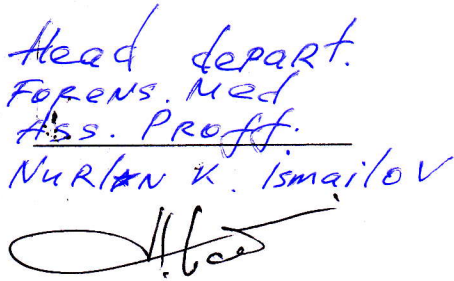 Head depart.
Forens. Med
Ass. Proff.
Nurlan K. ismailov